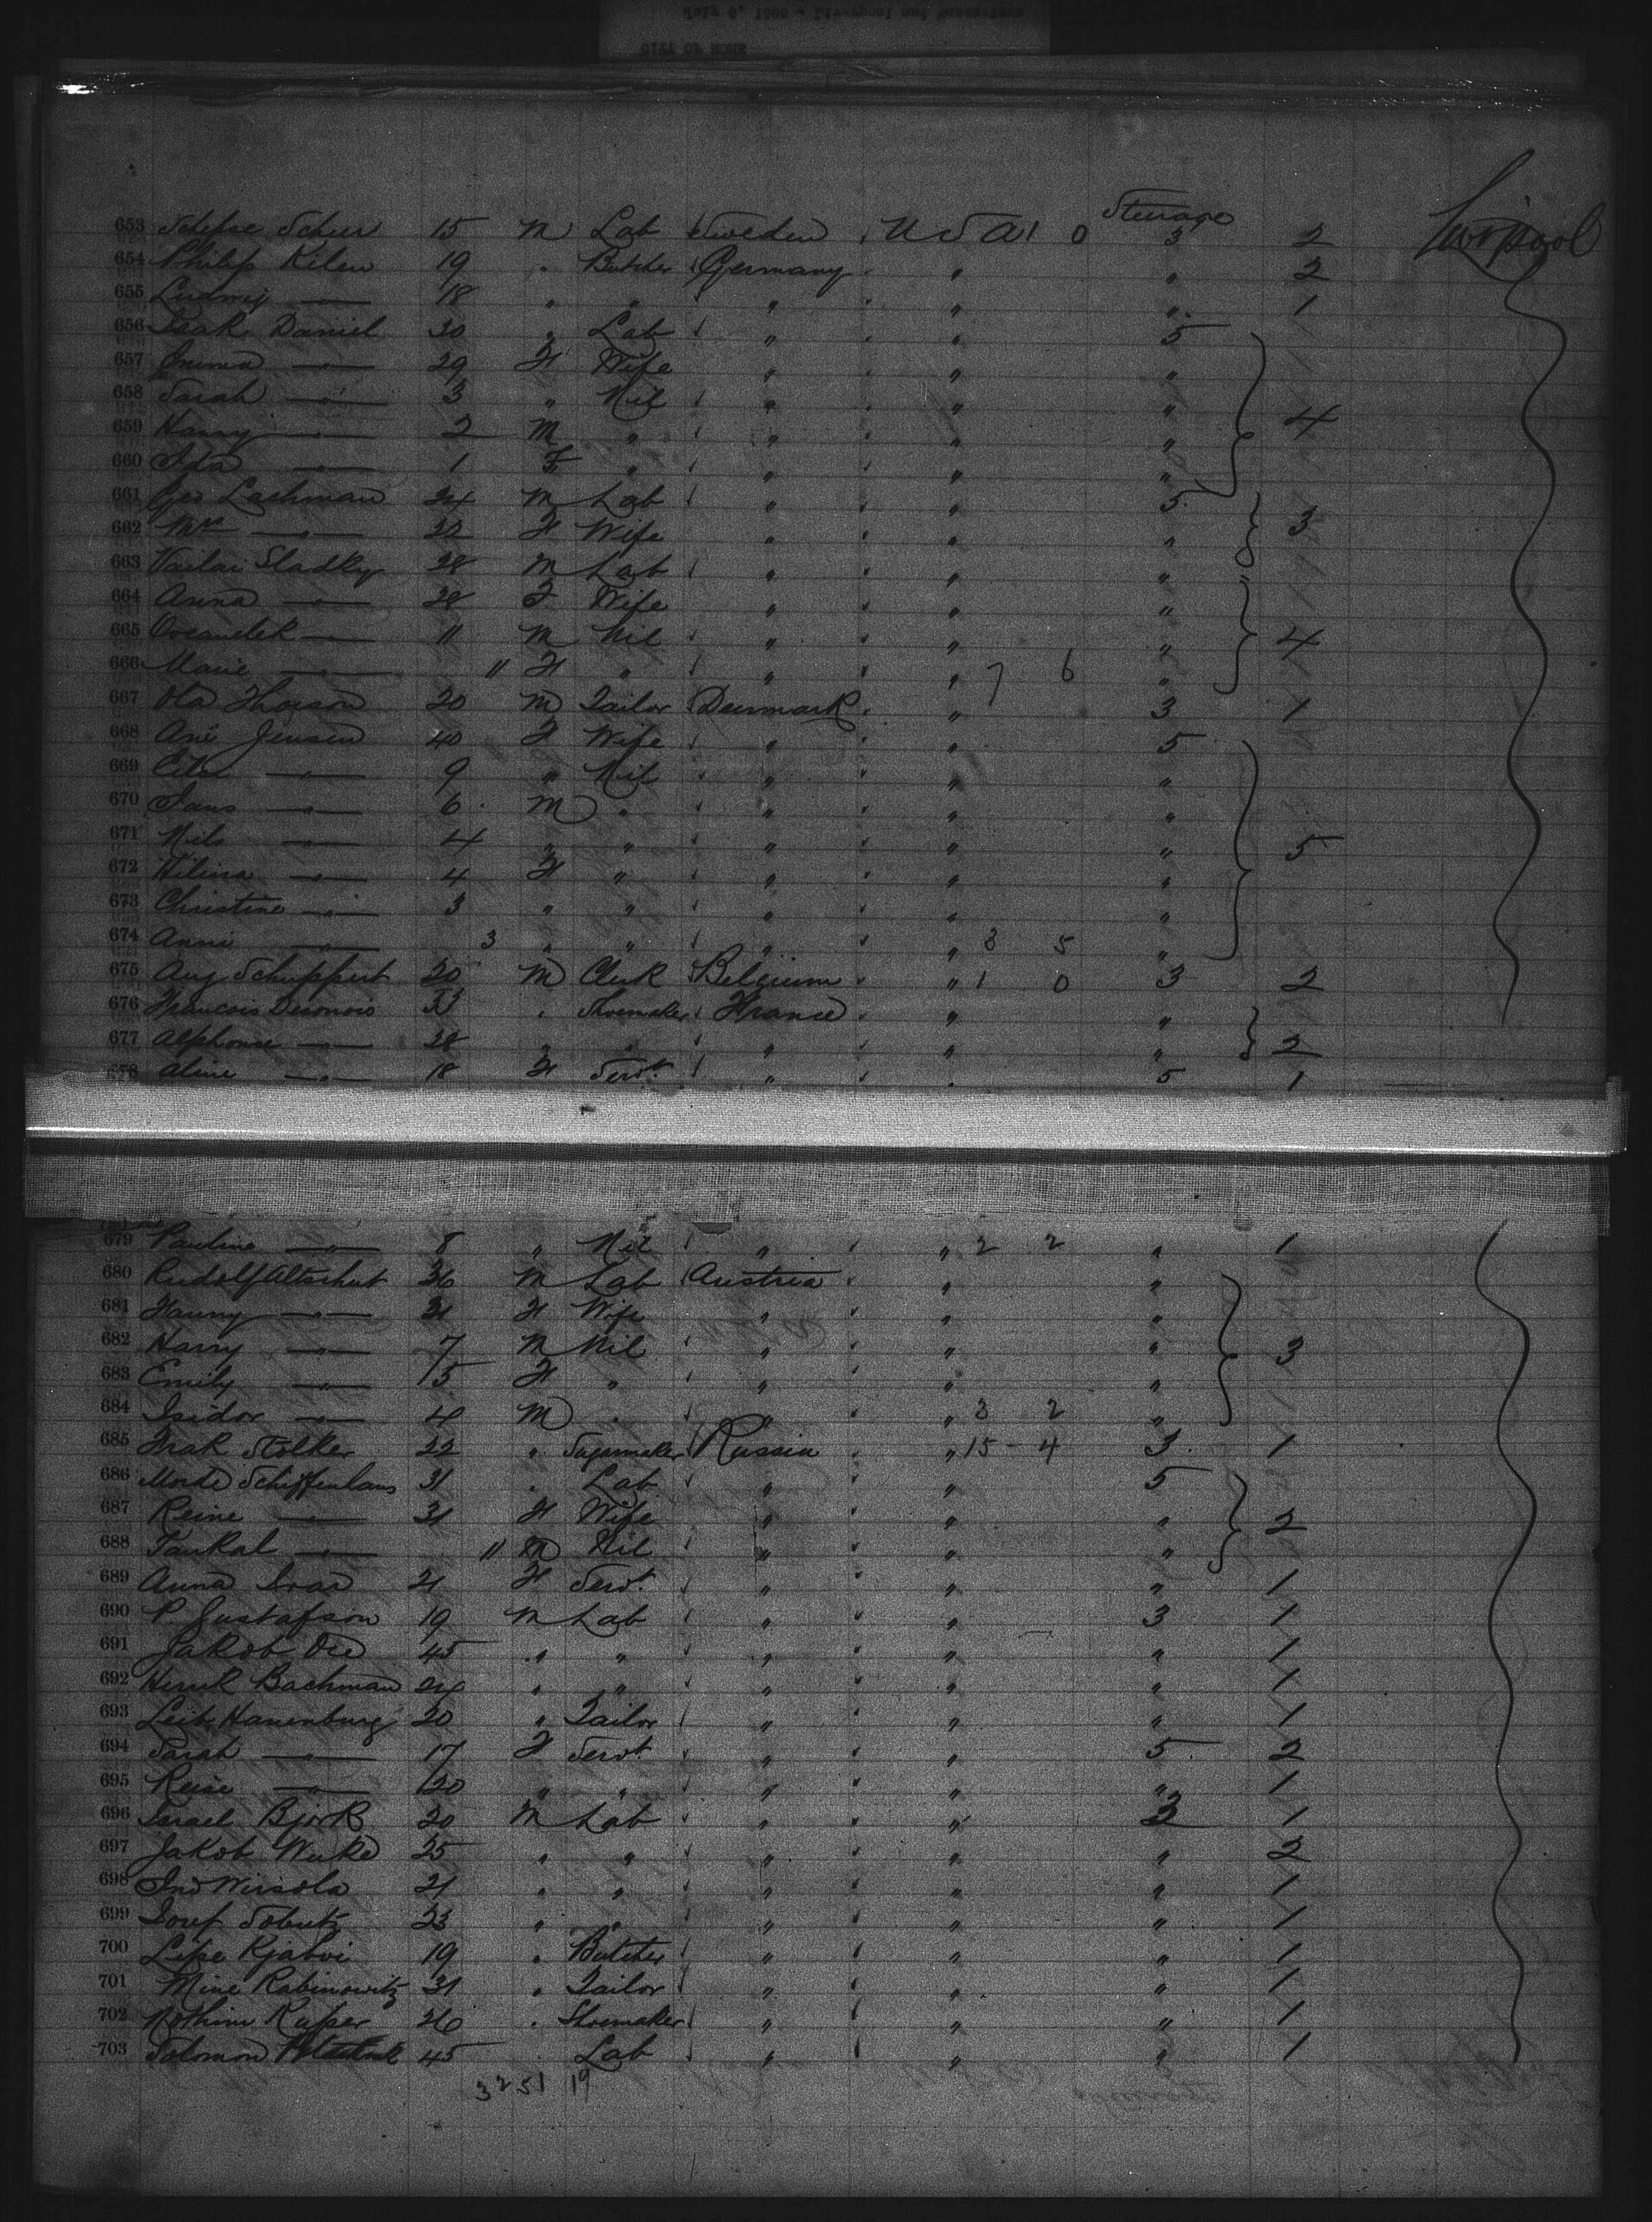 CITY OF ROME
Steerage
653 Schepse Scheer 15 M Lab Sweden U S A 1 0 3 2 Liverpool
654 Philip Kilen 19 " Butcher Germany " " 2
655 Ludwig —"— 18 " " " " " 1
656 Daniel 30 " Lab " " 5
657 Emma —"— 29 F Wife " " "
658 Sarah —"— 3 " Nil " " "
659 Harry —"— 2 M " " " " 4
660 Ida —"— 1 F " " " "
661 Geo Lachman 24 M Lab " " 5
662 Mrs —"— 22 F Wife " " " 3
663 Sladky 28 M Lab " " "
664 Anna —"— 28 F Wife " " "
665 —"— 11 M Nil " " " 4
666 Marie —"— 11 F " " " 7 6 "
667 Ola Thorson 20 M Tailor Denmark " 3 1
668 Ane Jensen 40 F Wife " " 5
669 —"— 9 " Nil " " "
670 Jans —"— 6 M " " " "
671 Nils —"— 4 " " " " " 5
672 Hilina —"— 4 F " " " "
673 Christine —"— 3 " " " " "
674 Anni —"— 3 " " " " 3 5 "
675 Aug Schuppert 20 M Clerk Belgium " 1 0 3 2
676 Francois 33 " Shoemaker France " "
677 Alphonse —"— 28 " " " " " 2
678 Aline —"— 18 F Servt " " 5 1
679 Pauline —"— 8 " Nil " " 2 2 " 1
680 Rudolf Altschut 36 M Lab Austria " "
681 Fanny —"— 31 F Wife " " "
682 Harry —"— 7 M Nil " " " 3
683 Emily —"— 15 F " " " "
684 Isidor —"— 4 M " " " 3 2 "
685 Stolker 22 " Sugarmaker Russia " 15 4 3 1
686 Schiffenhaus 31 " Lab " " 5
687 Reine —"— 31 F Wife " " " 2
688 Tankal —"— 11 M Nil " " "
689 Anna 21 F Servt " " " 1
690 P Gustafson 19 M Lab " " 3 1
691 Jakob 45 " " " " " 1
692 Henrk Bachman 24 " " " " " 1
693 Leib Hanenburg 20 " Tailor " " " 1
694 Sarah —"— 17 F Servt " " 5 2
695 Reise —"— 20 " " " " " 1
696 Israel Bjork 20 M Lab " " 3 1
697 Jakob Wuke 25 " " " " " 2
698 Wirsola 21 " " " " " 1
699 Josef 23 " " " " " 1
700 Lipe 19 " Butcher " " " 1
701 Mine Rabinowitz 31 " Tailor " " " 1
702 Nothim Kuper 26 " Shoemaker " " " 1
703 Solomon 45 Lab " " " 1
3251 19